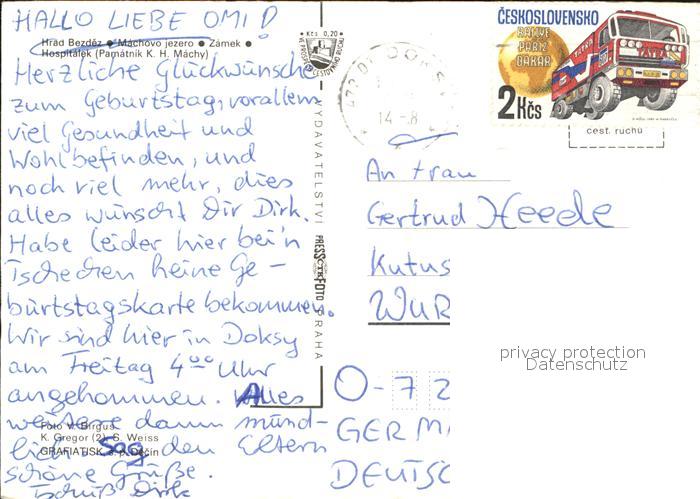 HALLO LIEBE OMI!
Hrad Bezděz ● Máchovo jezero ● Zámek ●
Hospitálek (Památník K. H. Máchy)
Herzliche Glückwünsche
zum Geburtstag, vorallem
viel Gesundheit und
Wohlbefinden, und
noch viel mehr, dies
alles wünscht Dir Dirk.
Habe leider hier bei'n
Tschechen keine Ge-
burtstagskarte bekommen.
Wir sind hier in Doksy
am Freitag 4⁰⁰ Uhr
angehommen. Alles
weitere dann münd-
lich. Sag den Eltern
schöne Grüße.
Tschüß Dirk
Foto V. Birgus
K. Gregor (2), S. Weiss
GRAFIATISK, s. p. Děčín
Kčs 0,20
VYDAVATELSTVÍ PRESSFOTO PRAHA
DOKSY
14.-8
ČESKOSLOVENSKO
RALLYE
PAŘÍŽ
DAKAR
TATRA
2 Kčs
cest. ruchu
An Frau
Gertrud Heede
Kutus
WUR
O-72
GERM
DEUTSC
privacy protection
Datenschutz